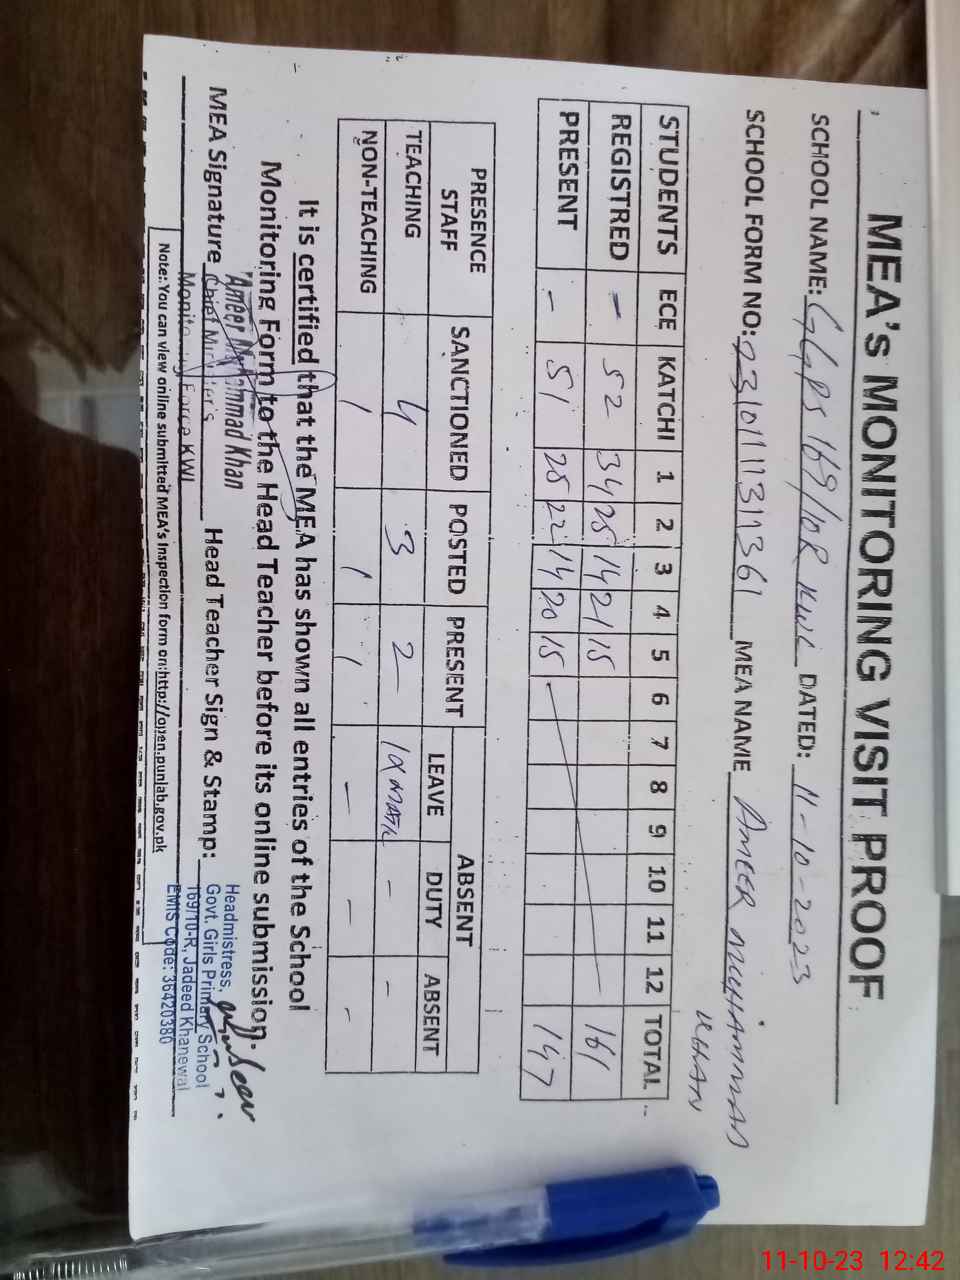 MEA'S MONITORING VISIT PROOF
SCHOOL NAME: GGPS 169/10R KWL DATED: 11-10-2023
SCHOOL FORM NO: MEA NAME AMEER MUHAMMAD
KHAN
STUDENTS ECE KATCHI 1 2 3 4 5 6 7 8 9 10 11 12 TOTAL
REGISTRED - 52 34 25 14 21 15 161
PRESENT - 51 25 22 14 20 15 147
PRESENCE STAFF SANCTIONED POSTED PRESENT ABSENT
LEAVE DUTY ABSENT
TEACHING 4 3 2 - -
NON-TEACHING 1 1 1 - - -
It is certified that the MEA has shown all entries of the School
Monitoring Form to the Head Teacher before its online submission.
Ameer Muhammad Khan
MEA Signature Chief Minister's Head Teacher Sign & Stamp:
Monitoring Force KWL
Headmistress,
Govt. Girls Primary School
169/10-R, Jadeed Khanewal
EMIS Code: 36420380
Note: You can view online submitted MEA's Inspection form on:http://open.punjab.gov.pk
11-10-23 12:42